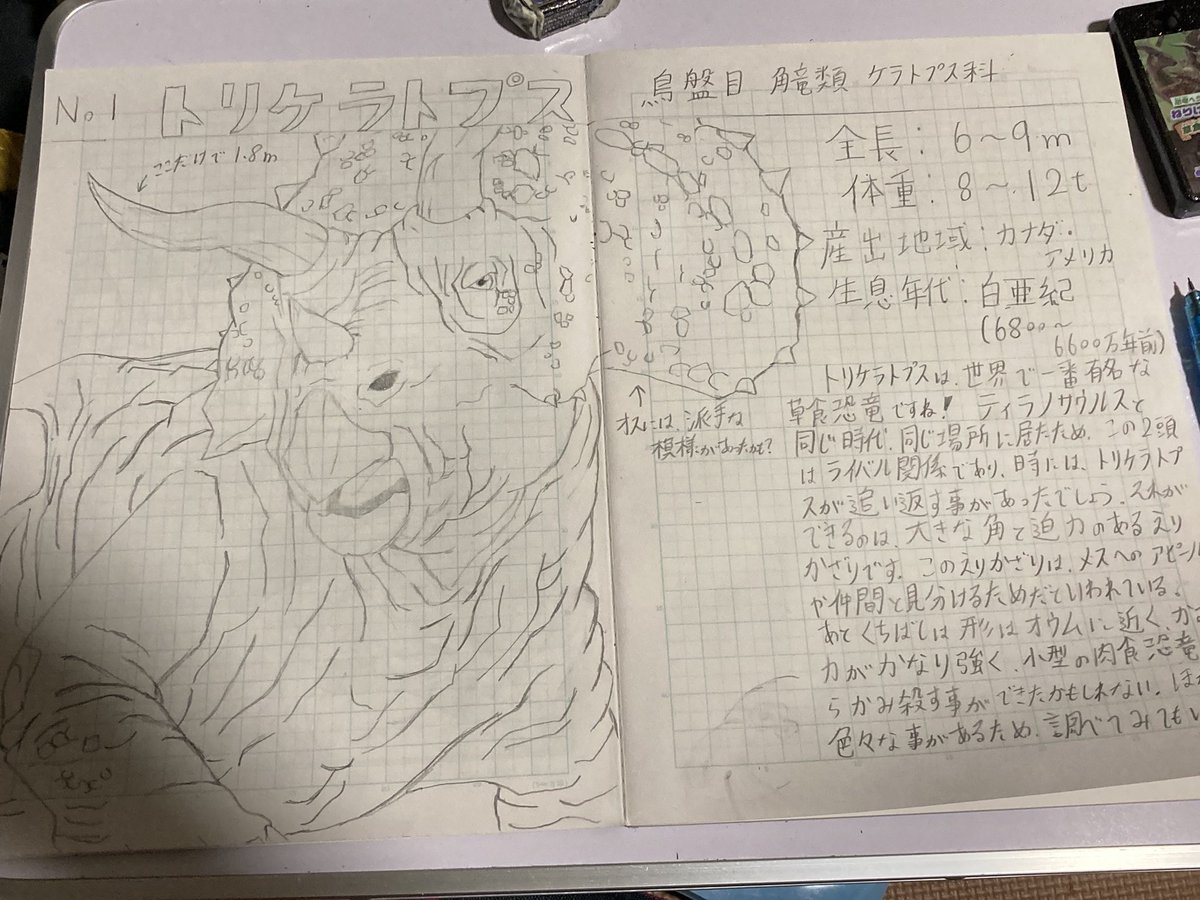 No.1 トリケラトプス
ここだけで 1.8m
鳥盤目 角竜類 ケラトプス科
全長: 6~9m
体重: 8~12t
産出地域: カナダ・
アメリカ
生息年代: 白亜紀
(6800~
6600万年前)
オスには、派手な
模様があったかも?
トリケラトプスは、世界で一番有名な
草食恐竜ですね! ティラノサウルスと
同じ時代、同じ場所に居たため、この2頭
はライバル関係であり、時には、トリケラトプ
スが追い返す事があったでしょう。それが
できるのは、大きな角と迫力のあるえり
かざりです。このえりかざりは、メスへのアピール
や仲間と見分けるためだといわれている。
あとくちばしは形はオウムに近く、か
力がかなり強く、小型の肉食恐竜
らかみ殺す事ができたかもしれない。ほか
色々な事があるため、調べてみても